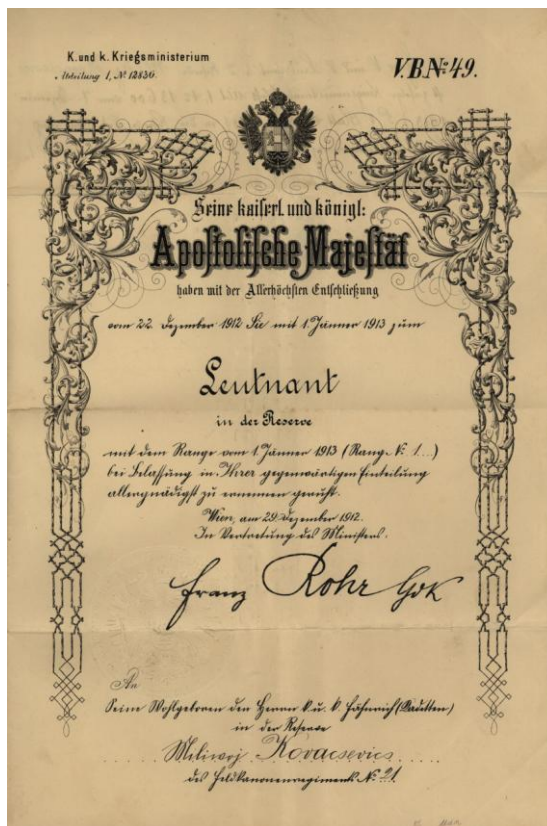 K. und k. Kriegsministerium
V.B.№ 49.
Abteilung 1, № 12836.
Seine kaiserl. und königl:
Apostolische Majestät
haben mit der Allerhöchsten Entschließung
vom 22. Dezember 1912 Sie mit 1. Jänner 1913 zum
Leutnant
in der Reserve
mit dem Range vom 1. Jänner 1913 (Rang-№ 1...)
bei Belassung in Ihrer gegenwärtigen Einteilung
allergnädigst zu ernennen geruht.
Wien, am 29. Dezember 1912.
In Vertretung des Ministers.
Franz Rohr GdK
An
Seine Wohlgeboren den Herrn k. u. k. Fähnrich (Kadetten)
in der Reserve
Miliwoj Kovacsevics
des Feldkanonenregiments № 21